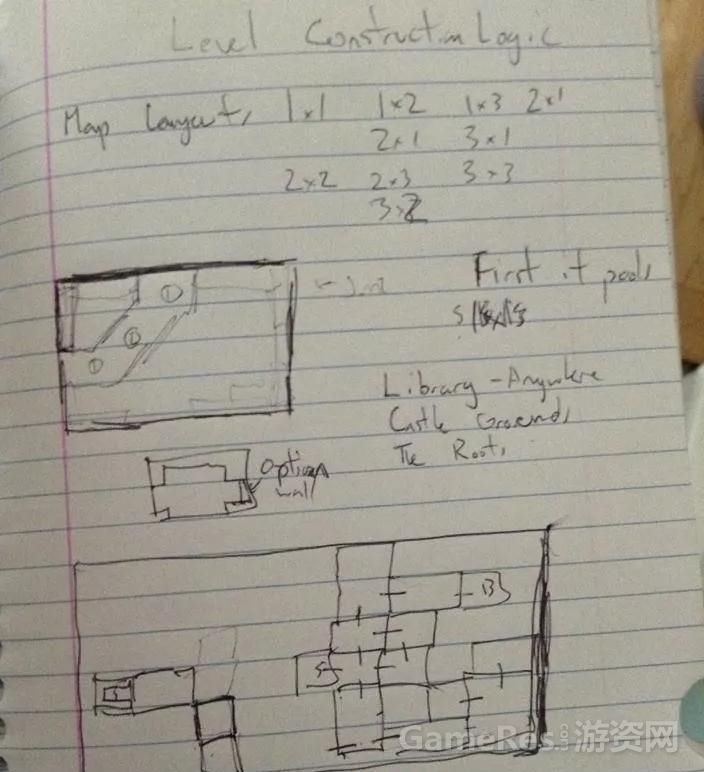 Level Construction Logic
Map Layouts 1x1 1x2 1x3 2x1
2x1 3x1
2x2 2x3 3x3
3x2
①
First it pools
②
①
Library - Anywhere
Castle Grounds
The Roots
Optional
wall
B
S
S
GameRes.com 游资网